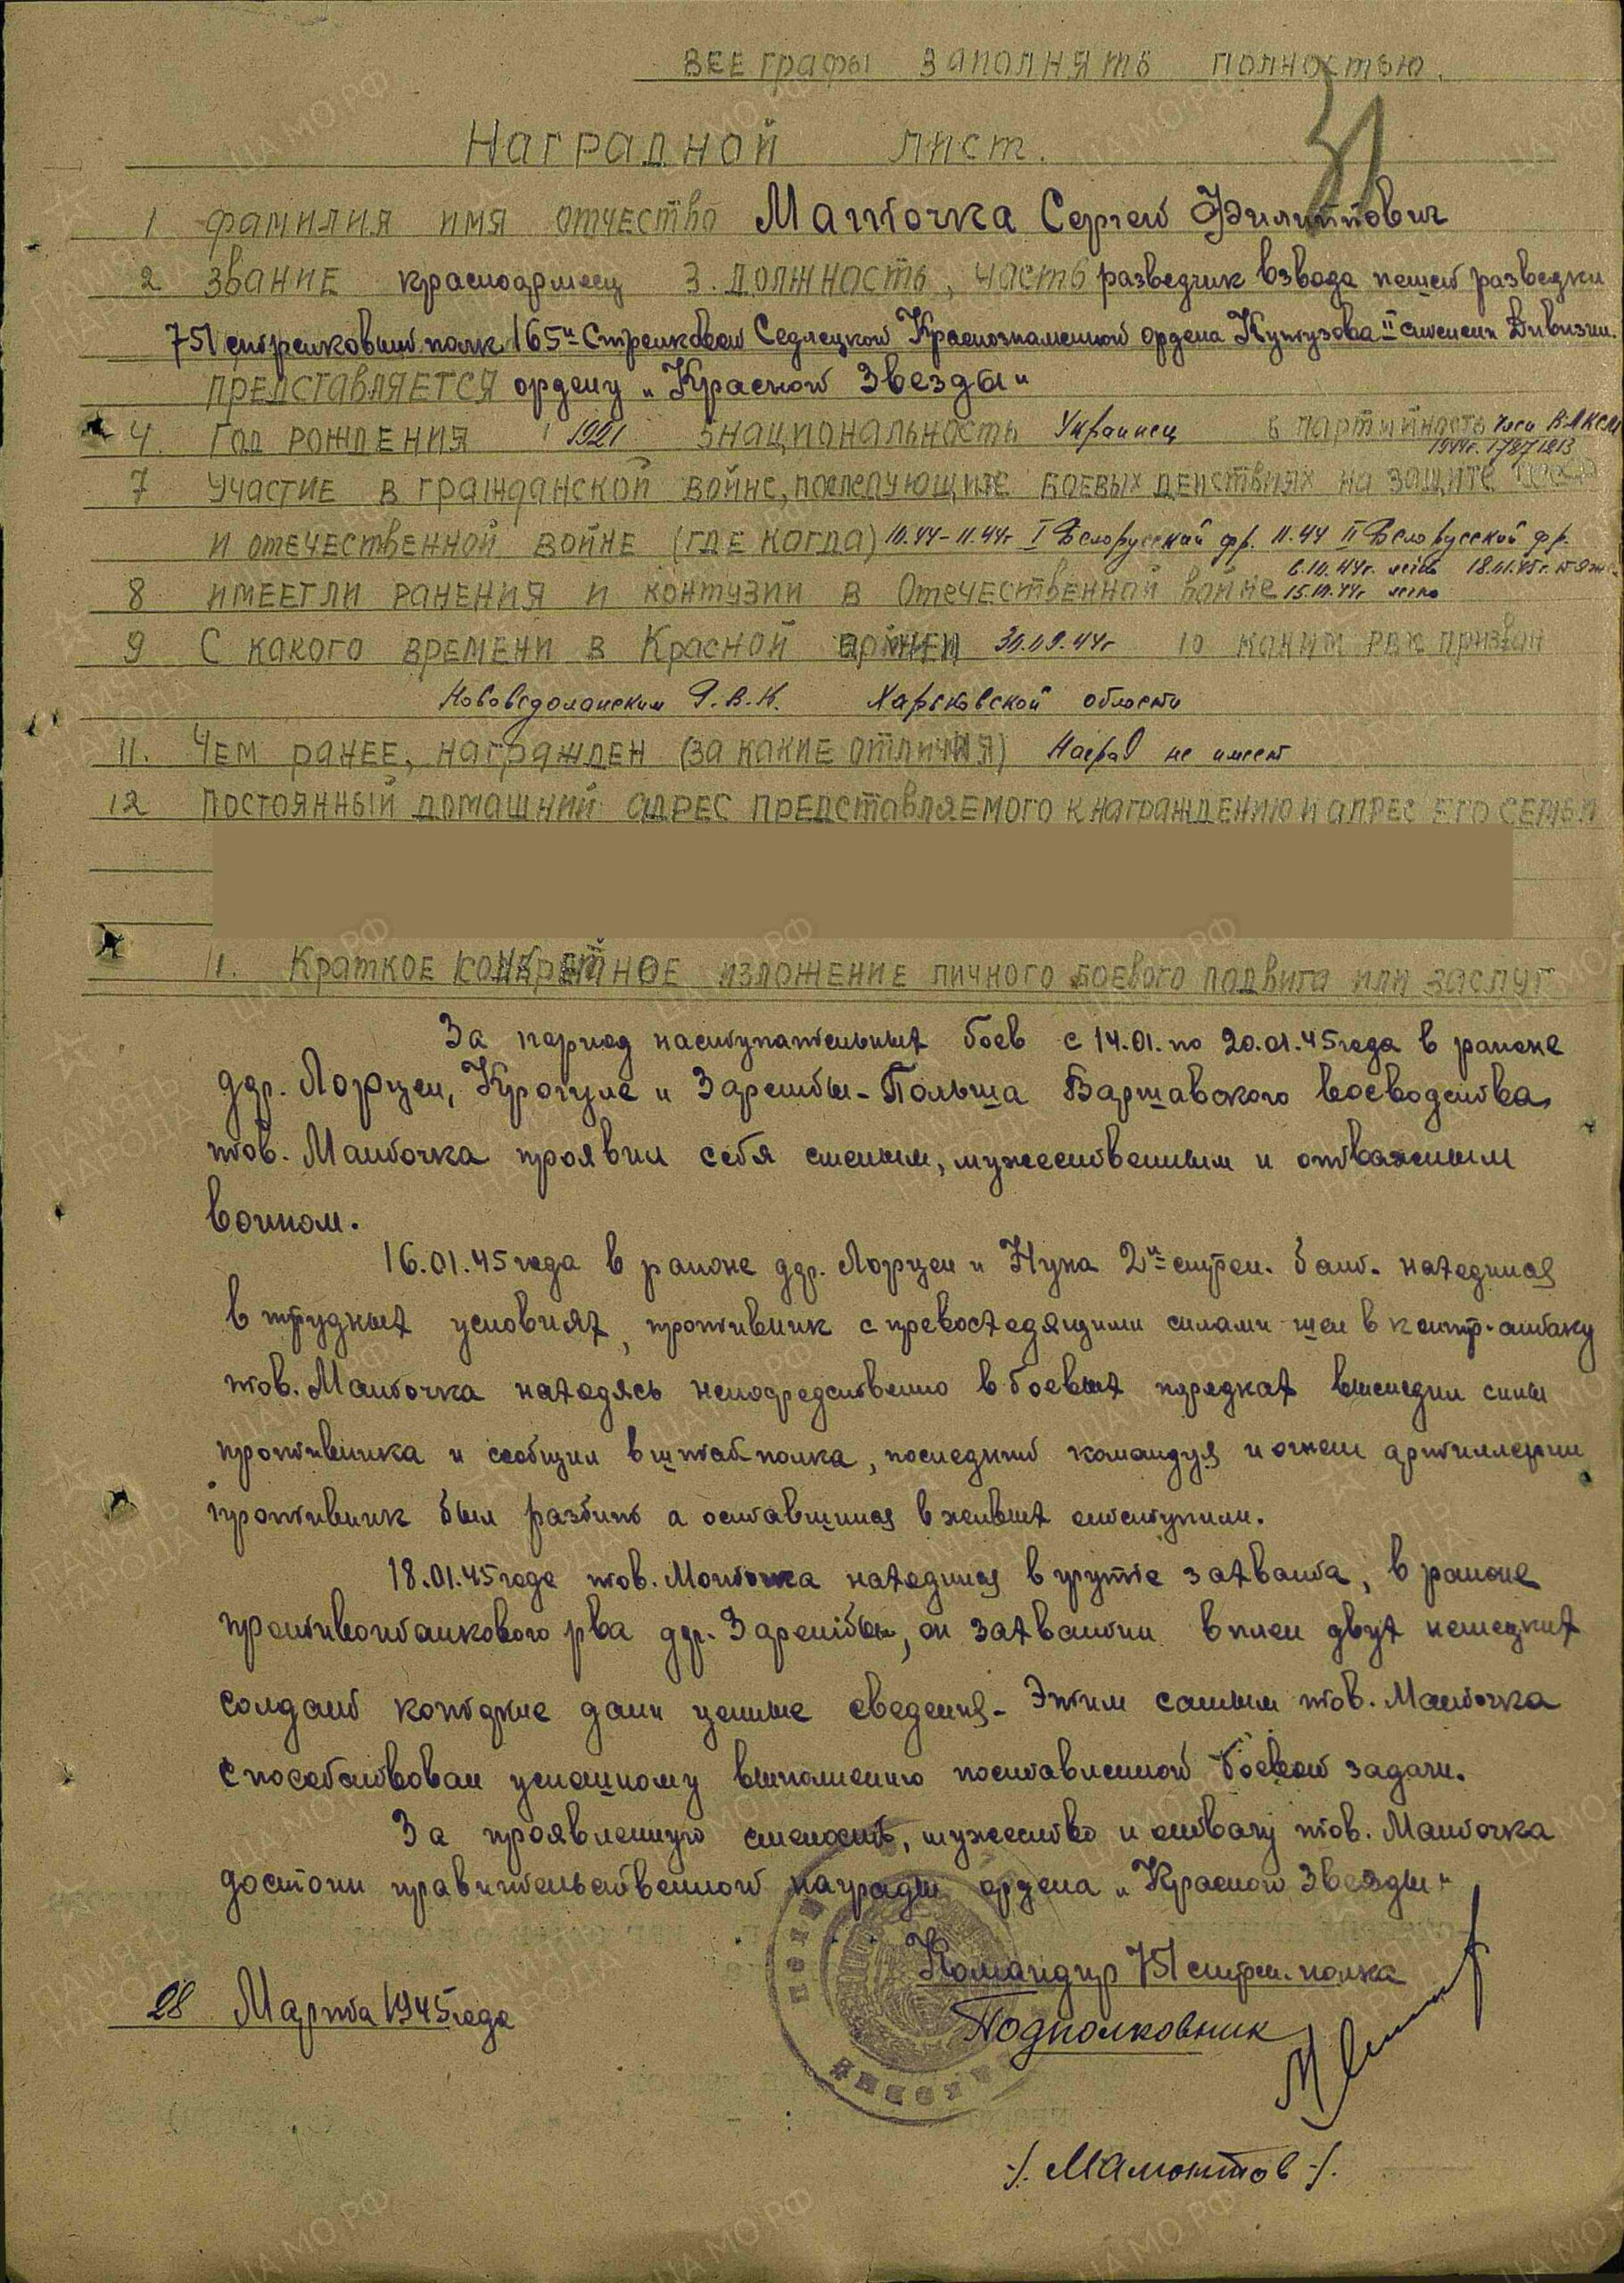 ВСЕ графы заполнять полностью.
31
Наградной лист.
1 фамилия имя отчество Маиточка Сергей Филиппович
2 звание красноармеец 3. должность, часть разведчик взвода пешей разведки
751 стрелковый полк 165й Стрелковой Седлецкой Краснознаменной ордена Кутузова II степени Дивизии.
представляется ордену „Красной Звезды"
4. Год рождения 1921 5 национальность Украинец 6 партийность член ВЛКСМ
1944г. 17871213
7 Участие в гражданской войне, последующие боевых действиях на защите СССР
и отечественной войне (где когда) 10.44-11.44г I Белорусский фр. 11.44 II Белорусской фр.
6.10.44г. легко 18.01.45г. тяже
8 имеет ли ранения и контузии в Отечественной войне 15.10.44г легко
9 С какого времени в Красной армии 30.09.44г 10 каким РВК призван
Нововодолажским Р.В.К. Харьковской области
11. Чем ранее, награжден (за какие отличия) Наград не имеет
12 Постоянный домашний адрес представляемого к награждению и адрес его семьи
1. Краткое конкретное изложение личного боевого подвига или заслуг
За период наступательных боев с 14.01. по 20.01.45 года в районе
ддр. Лорцен, и Зарембы - Польша Варшавского воеводства,
тов. Маиточка проявил себя смелым, мужественным и отважным
воином.
16.01.45 года в районе ддр. Лорцен и 2й стрел. бат. находился
в трудных условиях, противник с превосходящими силами шел в контр-атаку
тов. Маиточка находясь непосредственно в боевых порядках выследил силы
противника и сообщил в штаб полка, последний и огнем артиллерии
противник был разбит а оставшиися в живых отступили.
18.01.45 года тов. Маиточка находился в группе захвата, в районе
противотанкового рва ддр. Зарембы, он захватил в плен двух немецких
солдат которые дали ценные сведения - Этим самым тов. Маиточка
способствовал успешному выполнению поставленной боевой задачи.
За проявленную смелость, мужество и отвагу тов. Маиточка
достоин правительственной награды ордена „Красной Звезды"
Командир 751 стрел. полка
28 Марта 1945 года
Подполковник
-/. Мамонтов -/.